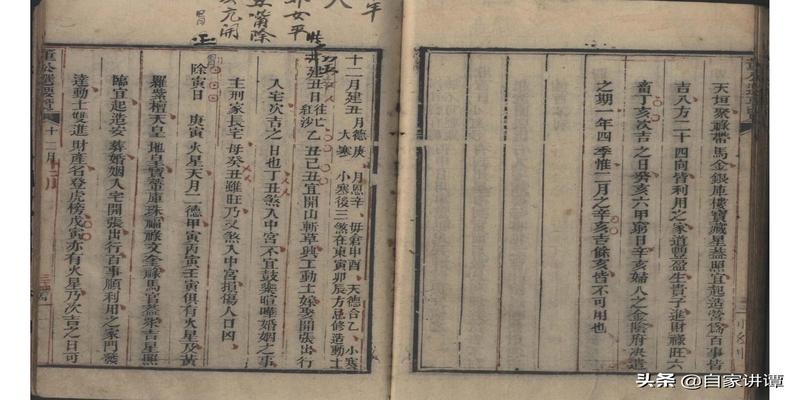 天垣聚祿帶馬金銀庫樓寶藏星葢照宜起造營爲百事皆
吉八方二十四向皆利用之家道豐盈生貴子進財祿旺六
畜丁亥次吉之日癸亥六甲窮日辛亥婦人之金陰府决遣
之期一年四季惟二月之辛亥吉餘亥皆不可用也
十二月建丑 月德庚 月恩辛 毋倉申酉 天德合乙 小寒
大寒 小寒後三煞在東寅卯辰方忌修造動土
建丑日往亡紅沙乙丑己丑宜開山斬草興工動土嫁娶開張出行
入宅次吉之日也丁丑煞入中宮不宜鼓樂喧嘩婚姻之事
主刑家長宅母癸丑雖旺乃又煞入中宮損傷人口凶
除寅日 庚寅火星天月二德甲寅丙寅壬寅俱有火星及黄
羅紫檀天皇地皇寶輦庫珠福祿文奎祿馬官葢衆吉星照
臨宜起造安葬婚姻入宅開張出行百事順利用之家門發
達動土雙進財產名登虎榜戊寅亦有火星乃次吉之日可
董公選要覽 十二月
头条 @自家讲谭